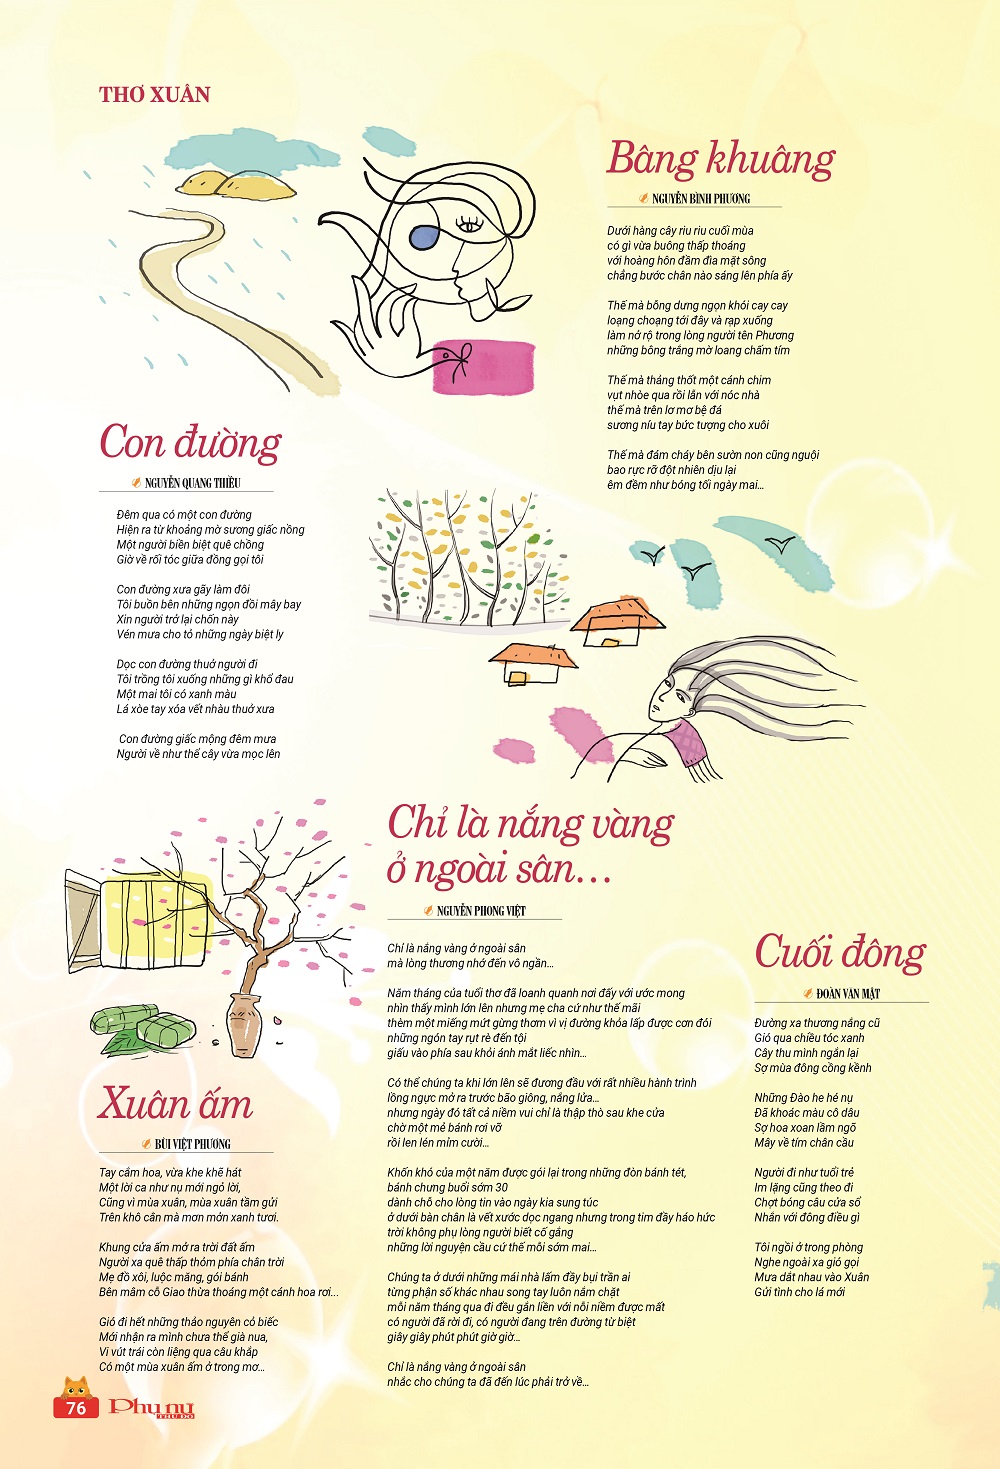 THƠ XUÂN
Bâng khuâng
NGUYỄN BÌNH PHƯƠNG
Dưới hàng cây riu riu cuối mùa
có gì vừa buông thấp thoáng
với hoàng hôn đầm đìa mặt sông
chẳng bước chân nào sáng lên phía ấy
Thế mà bỗng dưng ngọn khói cay cay
loạng choạng tới đây và rạp xuống
làm nở rộ trong lòng người tên Phương
những bông trắng mờ loang chấm tím
Thế mà thảng thốt một cánh chim
vụt nhòe qua rồi lẫn với nóc nhà
thế mà trên lơ mơ bệ đá
sương níu tay bức tượng cho xuôi
Thế mà đám cháy bên sườn non cũng nguội
bao rực rỡ đột nhiên dịu lại
êm đềm như bóng tối ngày mai...
Con đường
NGUYỄN QUANG THIỀU
Đêm qua có một con đường
Hiện ra từ khoảng mờ sương giấc nồng
Một người biền biệt quê chồng
Giờ về rối tóc giữa đồng gọi tôi
Con đường xưa gãy làm đôi
Tôi buồn bên những ngọn đồi mây bay
Xin người trở lại chốn này
Vén mưa cho tỏ những ngày biệt ly
Dọc con đường thuở người đi
Tôi trồng tôi xuống những gì khổ đau
Một mai tôi có xanh màu
Lá xòe tay xóa vết nhàu thuở xưa
Con đường giấc mộng đêm mưa
Người về như thể cây vừa mọc lên
Chỉ là nắng vàng
ở ngoài sân...
NGUYỄN PHONG VIỆT
Chỉ là nắng vàng ở ngoài sân
mà lòng thương nhớ đến vô ngần...
Năm tháng của tuổi thơ đã loanh quanh nơi đấy với ước mong
nhìn thấy mình lớn lên nhưng mẹ cha cứ như thế mãi
thèm một miếng mứt gừng thơm vì vị đường khỏa lấp được cơn đói
những ngón tay rụt rè đến tội
giấu vào phía sau khỏi ánh mắt liếc nhìn...
Có thể chúng ta khi lớn lên sẽ đương đầu với rất nhiều hành trình
lồng ngực mở ra trước bão giông, nắng lửa...
nhưng ngày đó tất cả niềm vui chỉ là thập thò sau khe cửa
chờ một mẻ bánh rơi vỡ
rồi len lén mỉm cười...
Khốn khó của một năm được gói lại trong những đòn bánh tét,
bánh chưng buổi sớm 30
dành chỗ cho lòng tin vào ngày kia sung túc
ở dưới bàn chân là vết xước dọc ngang nhưng trong tim đầy háo hức
trời không phụ lòng người biết cố gắng
những lời nguyện cầu cứ thế mỗi sớm mai...
Chúng ta ở dưới những mái nhà lấm đầy bụi trần ai
từng phận số khác nhau song tay luôn nắm chặt
mỗi năm tháng qua đi đều gắn liền với nỗi niềm được mất
có người đã rời đi, có người đang trên đường từ biệt
giây giây phút phút giờ giờ...
Chỉ là nắng vàng ở ngoài sân
nhắc cho chúng ta đã đến lúc phải trở về...
Cuối đông
ĐOÀN VĂN MẬT
Đường xa thương nắng cũ
Gió qua chiều tóc xanh
Cây thu mình ngần lại
Sợ mùa đông cồng kềnh
Những Đào he hé nụ
Đã khoác màu cô dâu
Sợ hoa xoan lầm ngõ
Mây về tím chân cầu
Người đi như tuổi trẻ
Im lặng cũng theo đi
Chợt bóng câu cửa sổ
Nhắn với đông điều gì
Tôi ngồi ở trong phòng
Nghe ngoài xa gió gọi
Mưa dắt nhau vào Xuân
Gửi tình cho lá mới
Xuân ấm
BÙI VIỆT PHƯƠNG
Tay cắm hoa, vừa khe khẽ hát
Một lời ca như nụ mới ngỏ lời,
Cũng vì mùa xuân, mùa xuân tằm gửi
Trên khô cằn mà mơn mởn xanh tươi.
Khung cửa ấm mở ra trời đất ấm
Người xa quê thấp thỏm phía chân trời
Mẹ đồ xôi, luộc măng, gói bánh
Bên mâm cỗ Giao thừa thoáng một cánh hoa rơi...
Gió đi hết những thảo nguyên cỏ biếc
Mới nhận ra mình chưa thể già nua,
Vì vút trái còn liệng qua câu khắp
Có một mùa xuân ấm ở trong mơ...
76
Phụ nữ
THỦ ĐÔ